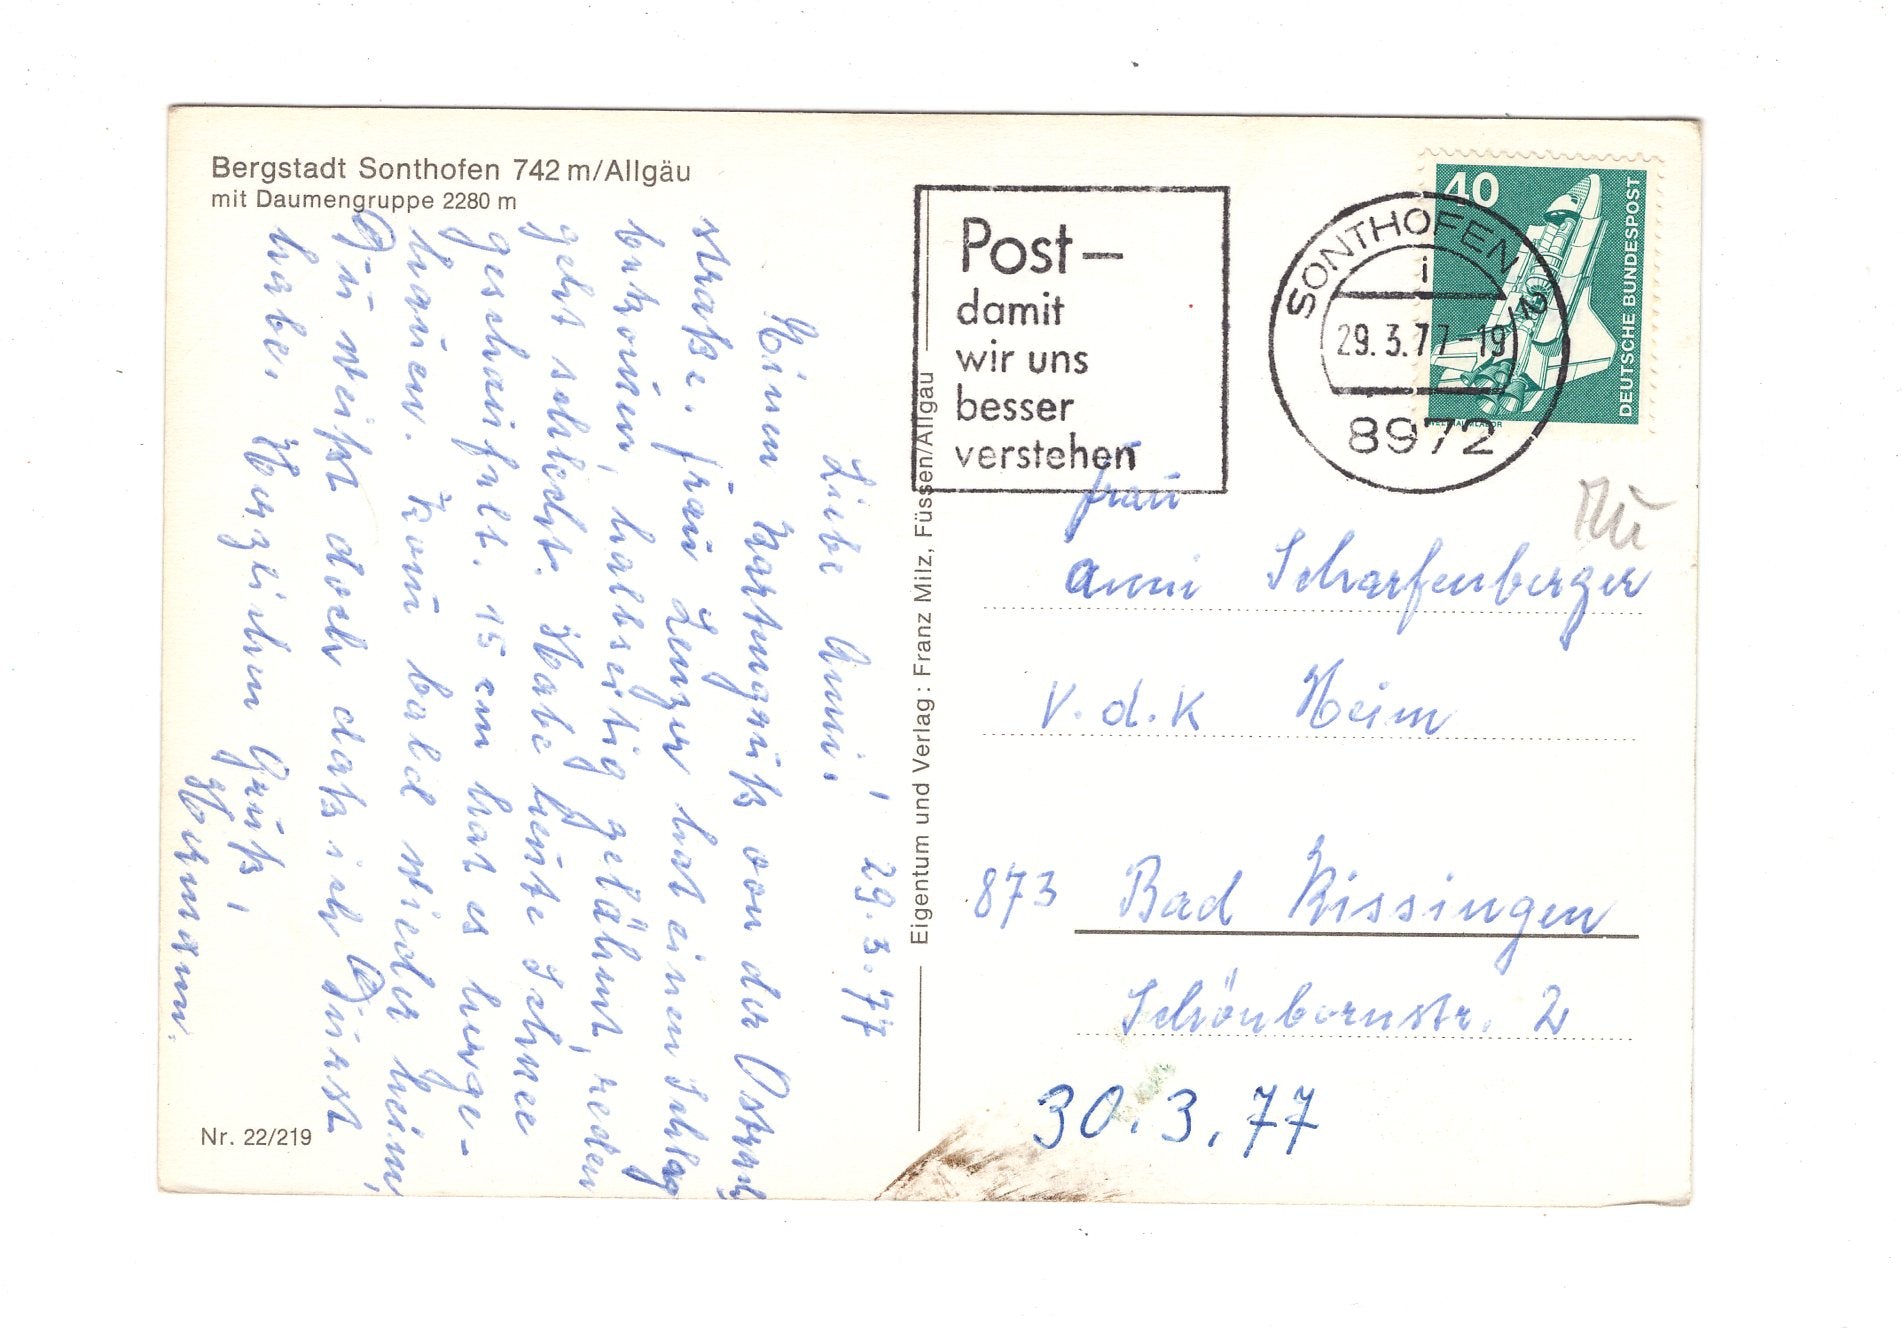 Bergstadt Sonthofen 742 m/Allgäu
mit Daumengruppe 2280 m
29.3.77
Liebe Anni!
Einen Kartengruß von der Ostrach
straße. Frau Lenzer hat einen Schlag
bekommen, halbseitig gelähmt, reden
geht schlecht. Habe heute Schnee
geschaufelt. 15 cm hat es herge-
hauen. Komm bald wieder heim,
Du weißt doch daß ich Durst
habe. Herzlichen Gruß!
Hermann.
Nr. 22/219
Eigentum und Verlag: Franz Milz, Füssen/Allgäu
Post–
damit
wir uns
besser
verstehen
SONTHOFEN 2
i
29.3.77-19
8972
40
DEUTSCHE BUNDESPOST
WELTRAUMLABOR
Frau
Anni Scharfenberger
V.d.K Heim
873 Bad Kissingen
Schönbornstr. 2
30.3.77